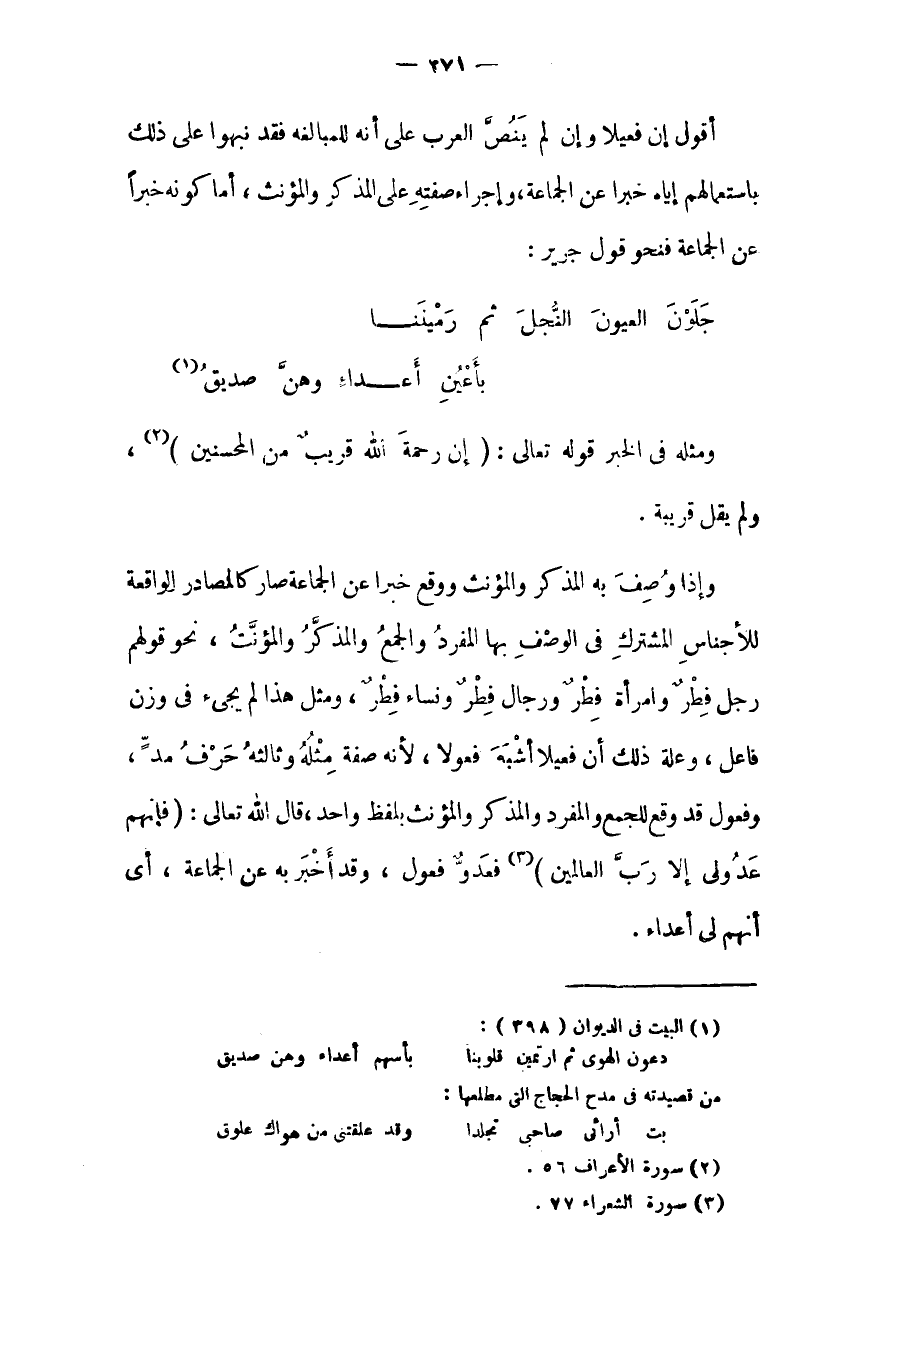 — ٢٧١ —
أقول إن فعيلا وإن لم يَنُصَّ العرب على أنه للمبالغه فقد نبهوا على ذلك
باستعمالهم إياه خبرا عن الجماعة، وإجراء صفتِهِ على المذكر والمؤنث ، أما كونه خبراً
عن الجماعة فنحو قول جرير :
جَلَوْنَ العيونَ النُّجلَ ثم رَمْينَنـــا
بأَعْيُنِ أَعـــداءِ وهنَّ صديقُ(١)
ومثله فى الخبر قوله تعالى : ( إن رحمةَ الله قريبٌ من المحسنين )(٢) ،
ولم يقل قريبة .
وإذا وُصِفَ به المذكر والمؤنث ووقع خبرا عن الجماعة صار كالمصادر الواقعة
للأجناسِ المشتركِ فى الوصْفِ بها المفردُ والجمعُ والمذكَّرُ والمؤنَّثُ ، نحو قولهم
رجل فِطْرٌ وامرأة فِطْرٌ ورجال فِطْرٌ ونساء فِطْرٌ ، ومثل هذا لم يجىء فى وزن
فاعل ، وعلة ذلك أن فعيلا أشْبَهَ فعولا ، لأنه صفة مِثْلُهُ وثالثهُ حَرْفُ مدٍّ ،
وفعول قد وقع للجمع والمفرد والمذكر والمؤنث بلفظ واحد ، قال الله تعالى : ( فإنهم
عَدُولى إلا رَبَّ العالمين )(٣) فعَدوٌّ فعول ، وقد أَخْبَر به عن الجماعة ، أى
أنهم لى أعداء .
(١) البيت فى الديوان ( ٣٩٨ ) :
دعون الهوى ثم ارتمين قلوبنا بأسهم أعداء وهن صديق
من قصيدته فى مدح الحجاج التى مطلعها :
بت أرائى صاحبى تجلدا وقد علقتنى من هواك علوق
(٢) سورة الأعراف ٥٦ .
(٣) سورة الشعراء ٧٧ .